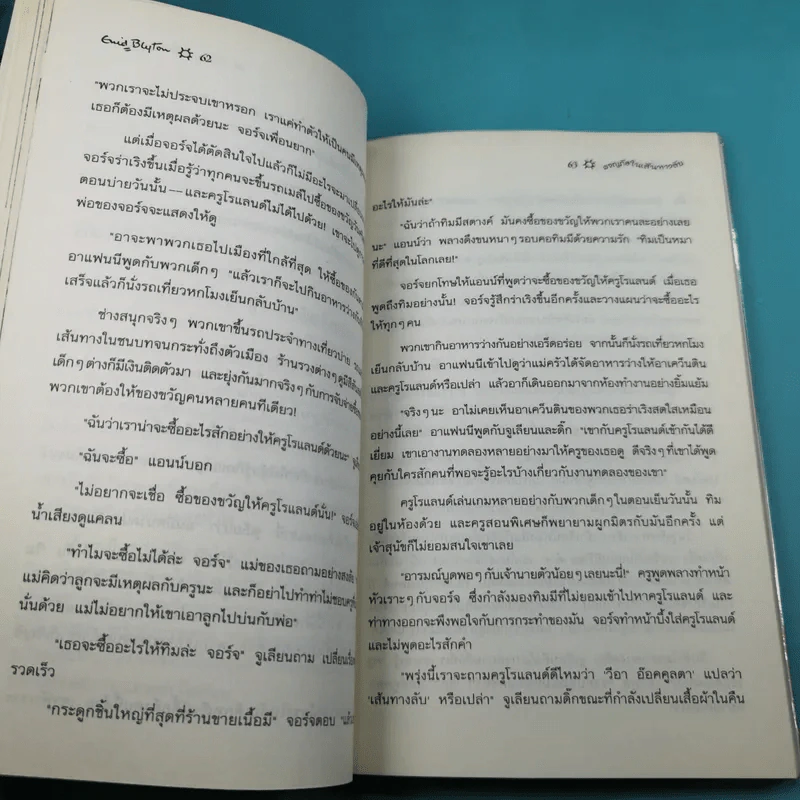 Enid Blyton ๖๒
"พวกเราจะไม่ประจบเขาหรอก เราแค่ทำตัวให้เป็นคนมีเหตุ
เธอก็ต้องมีเหตุผลด้วยนะ จอร์จเพื่อนยาก"
แต่เมื่อจอร์จได้ตัดสินใจไปแล้วก็ไม่มีอะไรจะมาเปลี่ยน
จอร์จร่าเริงขึ้นเมื่อรู้ว่าทุกคนจะขึ้นรถเมล์ไปซื้อของขวัญวัน
ตอนบ่ายวันนั้น — และครูโรแลนด์ไม่ได้ไปด้วย! เขาจะ
พ่อของจอร์จจะแสดงให้ดู
"อาจะพาพวกเธอไปเมืองที่ใกล้ที่สุด ให้ซื้อของกัน
อาแฟนนีพูดกับพวกเด็กๆ "แล้วเราก็จะไปกินอาหารว่าง
เสร็จแล้วก็นั่งรถเที่ยวหกโมงเย็นกลับบ้าน"
ช่างสนุกจริงๆ พวกเขาขึ้นรถประจำทางเที่ยวบ่าย
เส้นทางในชนบทจนกระทั่งถึงตัวเมือง ร้านรวงต่างๆ ดูมีสีสัน
เด็กๆ ต่างก็มีเงินติดตัวมา และยุ่งกันมากจริงๆ กับการจับจ่าย
พวกเขาต้องให้ของขวัญคนหลายคนทีเดียว!
"ฉันว่าเราน่าจะซื้ออะไรสักอย่างให้ครูโรแลนด์ด้วยนะ"
"ฉันจะซื้อ" แอนน์บอก
"ไม่อยากจะเชื่อ ซื้อของขวัญให้ครูโรแลนด์นั่น!"
น้ำเสียงดูแคลน
"ทำไมจะซื้อไม่ได้ล่ะ จอร์จ" แม่ของเธอถามอย่างสงสัย
แม่คิดว่าลูกจะมีเหตุผลกับครูนะ และก็อย่าไปทำท่าไม่ชอบครู
นั่นด้วย แม่ไม่อยากให้เขาเอาลูกไปบ่นกับพ่อ"
"เธอจะซื้ออะไรให้ทิมล่ะ จอร์จ" จูเลียนถาม เปลี่ยนเรื่อง
รวดเร็ว
"กระดูกชิ้นใหญ่ที่สุดที่ร้านขายเนื้อมี" จอร์จตอบ
๖๓
อะไรให้มันล่ะ"
"ฉันว่าถ้าทิมมีสตางค์ มันคงซื้อของขวัญให้พวกเราคนละอย่างเลย
นะ" แอนน์ว่า พลางดึงขนหนาๆ รอบคอทิมมี่ด้วยความรัก "ทิมเป็นหมา
ที่ดีที่สุดในโลกเลย!"
จอร์จยกโทษให้แอนน์ที่พูดว่าจะซื้อของขวัญให้ครูโรแลนด์ เมื่อเธอ
พูดถึงทิมอย่างนั้น! จอร์จรู้สึกร่าเริงขึ้นอีกครั้งและวางแผนว่าจะซื้ออะไร
ให้ทุกๆ คน
พวกเขากินอาหารว่างกันอย่างเอร็ดอร่อย จากนั้นก็นั่งรถเที่ยวหกโมง
เย็นกลับบ้าน อาแฟนนีเข้าไปดูว่าแม่ครัวได้จัดอาหารว่างให้อาเควื่นติน
และครูโรแลนด์หรือเปล่า แล้วอาก็เดินออกมาจากห้องทำงานอย่างยิ้มแย้ม
"จริงๆ นะ อาไม่เคยเห็นอาเควื่นตินของพวกเธอร่าเริงสดใสเหมือน
อย่างนี้เลย" อาแฟนนีพูดกับจูเลียนและดิ๊ก "เขากับครูโรแลนด์เข้ากันได้ดี
เยี่ยม เขาเอางานทดลองหลายอย่างมาให้ครูของเธอดู ดีจริงๆ ที่เขาได้พูด
คุยกับใครสักคนที่พอจะรู้อะไรบ้างเกี่ยวกับงานทดลองของเขา"
ครูโรแลนด์เล่นเกมหลายอย่างกับพวกเด็กๆ ในตอนเย็นวันนั้น ทิม
อยู่ในห้องด้วย และครูสอนพิเศษก็พยายามผูกมิตรกับมันอีกครั้ง แต่
เจ้าสุนัขก็ไม่ยอมสนใจเขาเลย
"อารมณ์บูดพอๆ กับเจ้านายตัวน้อยๆ เลยนะนี่!" ครูพูดพลางทำหน้า
หัวเราะๆ กับจอร์จ ซึ่งกำลังมองทิมมี่ที่ไม่ยอมเข้าไปหาครูโรแลนด์ และ
ท่าทางออกจะพึงพอใจกับการกระทำของมัน จอร์จทำหน้าบึ้งใส่ครูโรแลนด์
และไม่พูดอะไรสักคำ
"พรุ่งนี้เราจะถามครูโรแลนด์ดีไหมว่า 'วีอา อ๊อคคูลตา' แปลว่า
'เส้นทางลับ' หรือเปล่า" จูเลียนถามดิ๊กขณะที่กำลังเปลี่ยนเสื้อผ้าในคืน